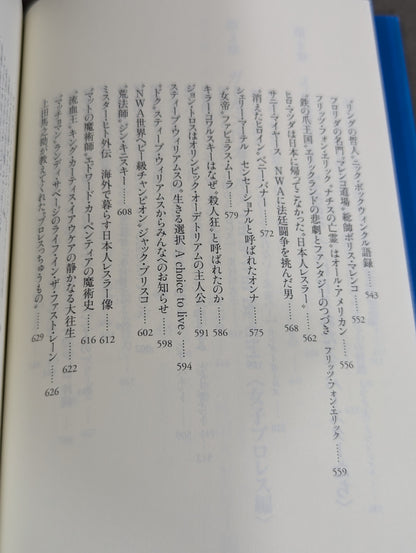 “リングの哲人”ニック・ボックウィンクル語録……543
フロリダの名門“マレンコ道場”総帥ボリス・マレンコ……552
フリッツ・フォン・エリック“ナチスの亡霊”はオール・アメリカン……556
“鉄の爪王国”エリックランドの悲劇とファンタジーのつづき フリッツ・フォン・エリック……559
ヒロ・マツダは日本に帰ってこなかった“日本人レスラー”……562
サニー・マイヤース NWAに法廷闘争を挑んだ男……568
“消えたヒロイン”ペニー・バナー……572
シェリー・マーテル センセーショナルと呼ばれたオンナ……575
“女帝”ファビュラス・ムーラ……579
キラー・コワルスキーはなぜ“殺人狂”と呼ばれたのか……586
ジョン・トロスはオリンピック・オーデトリアムの主人公……591
スティーブ・ウィリアムスの“生きる選択 A choice to live”……594
“ドク”スティーブ・ウィリアムスからみんなへのお知らせ……598
NWA世界ヘビー級チャンピオン ジャック・ブリスコ……602
“荒法師”ジン・キニスキー……608
ミスター・ヒト外伝 海外で暮らす日本人レスラー像……612
“マットの魔術師”エドワード・カーペンティアの魔術史……616
“流血王”キング・カーティス・イアウケアの静かなる大往生……622
“マッチョマン”ランディ・サベージのライフ・イン・ザ・ファスト・レーン……626
上田馬之助が教えてくれた“プロレスちゅうもの”……629